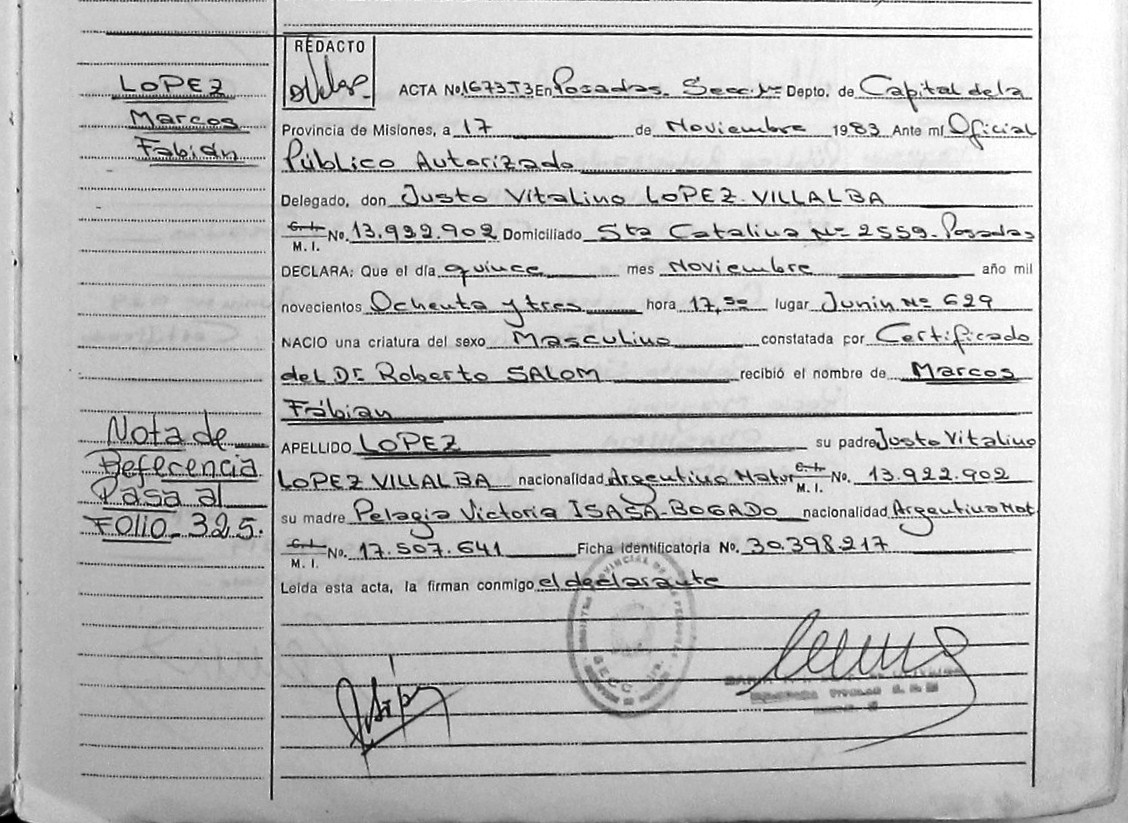 LOPEZ
Marcos
Fabián
Nota de
Referencia
Pasa al
FOLIO 325.
REDACTO
ACTA No 1673 T3 En Posadas Secc. 1ª Depto. de Capital de la
Provincia de Misiones, a 17 de Noviembre 1983 Ante mí Oficial
Público Autorizado
Delegado, don Justo Vitalino LOPEZ VILLALBA
C. I. No. 13.932.902 Domiciliado Sta Catalina Nº 2559 - Posadas
M. I.
DECLARA: Que el día quince mes Noviembre año mil
novecientos Ochenta y tres hora 17,30 lugar Junin Nº 629
NACIO una criatura del sexo Masculino constatada por Certificado
del Dr. Roberto SALOM recibió el nombre de Marcos
Fábian
APELLIDO LOPEZ su padre Justo Vitalino
LOPEZ VILLALBA nacionalidad Argentino Natur C. I. No. 13.922.902
M. I.
su madre Pelagia Victoria ISASA BOGADO nacionalidad Argentina Nat
C. I. No. 17.507.641 Ficha identificatoria No. 30.398.217
M. I.
Leída esta acta, la firman conmigo el declarante